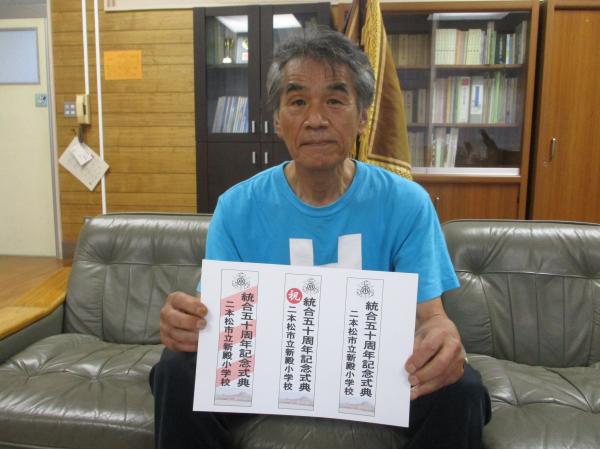 統合五十周年記念式典
二本松市立新殿小学校
祝
統合五十周年記念式典
二本松市立新殿小学校
統合五十周年記念式典
二本松市立新殿小学校